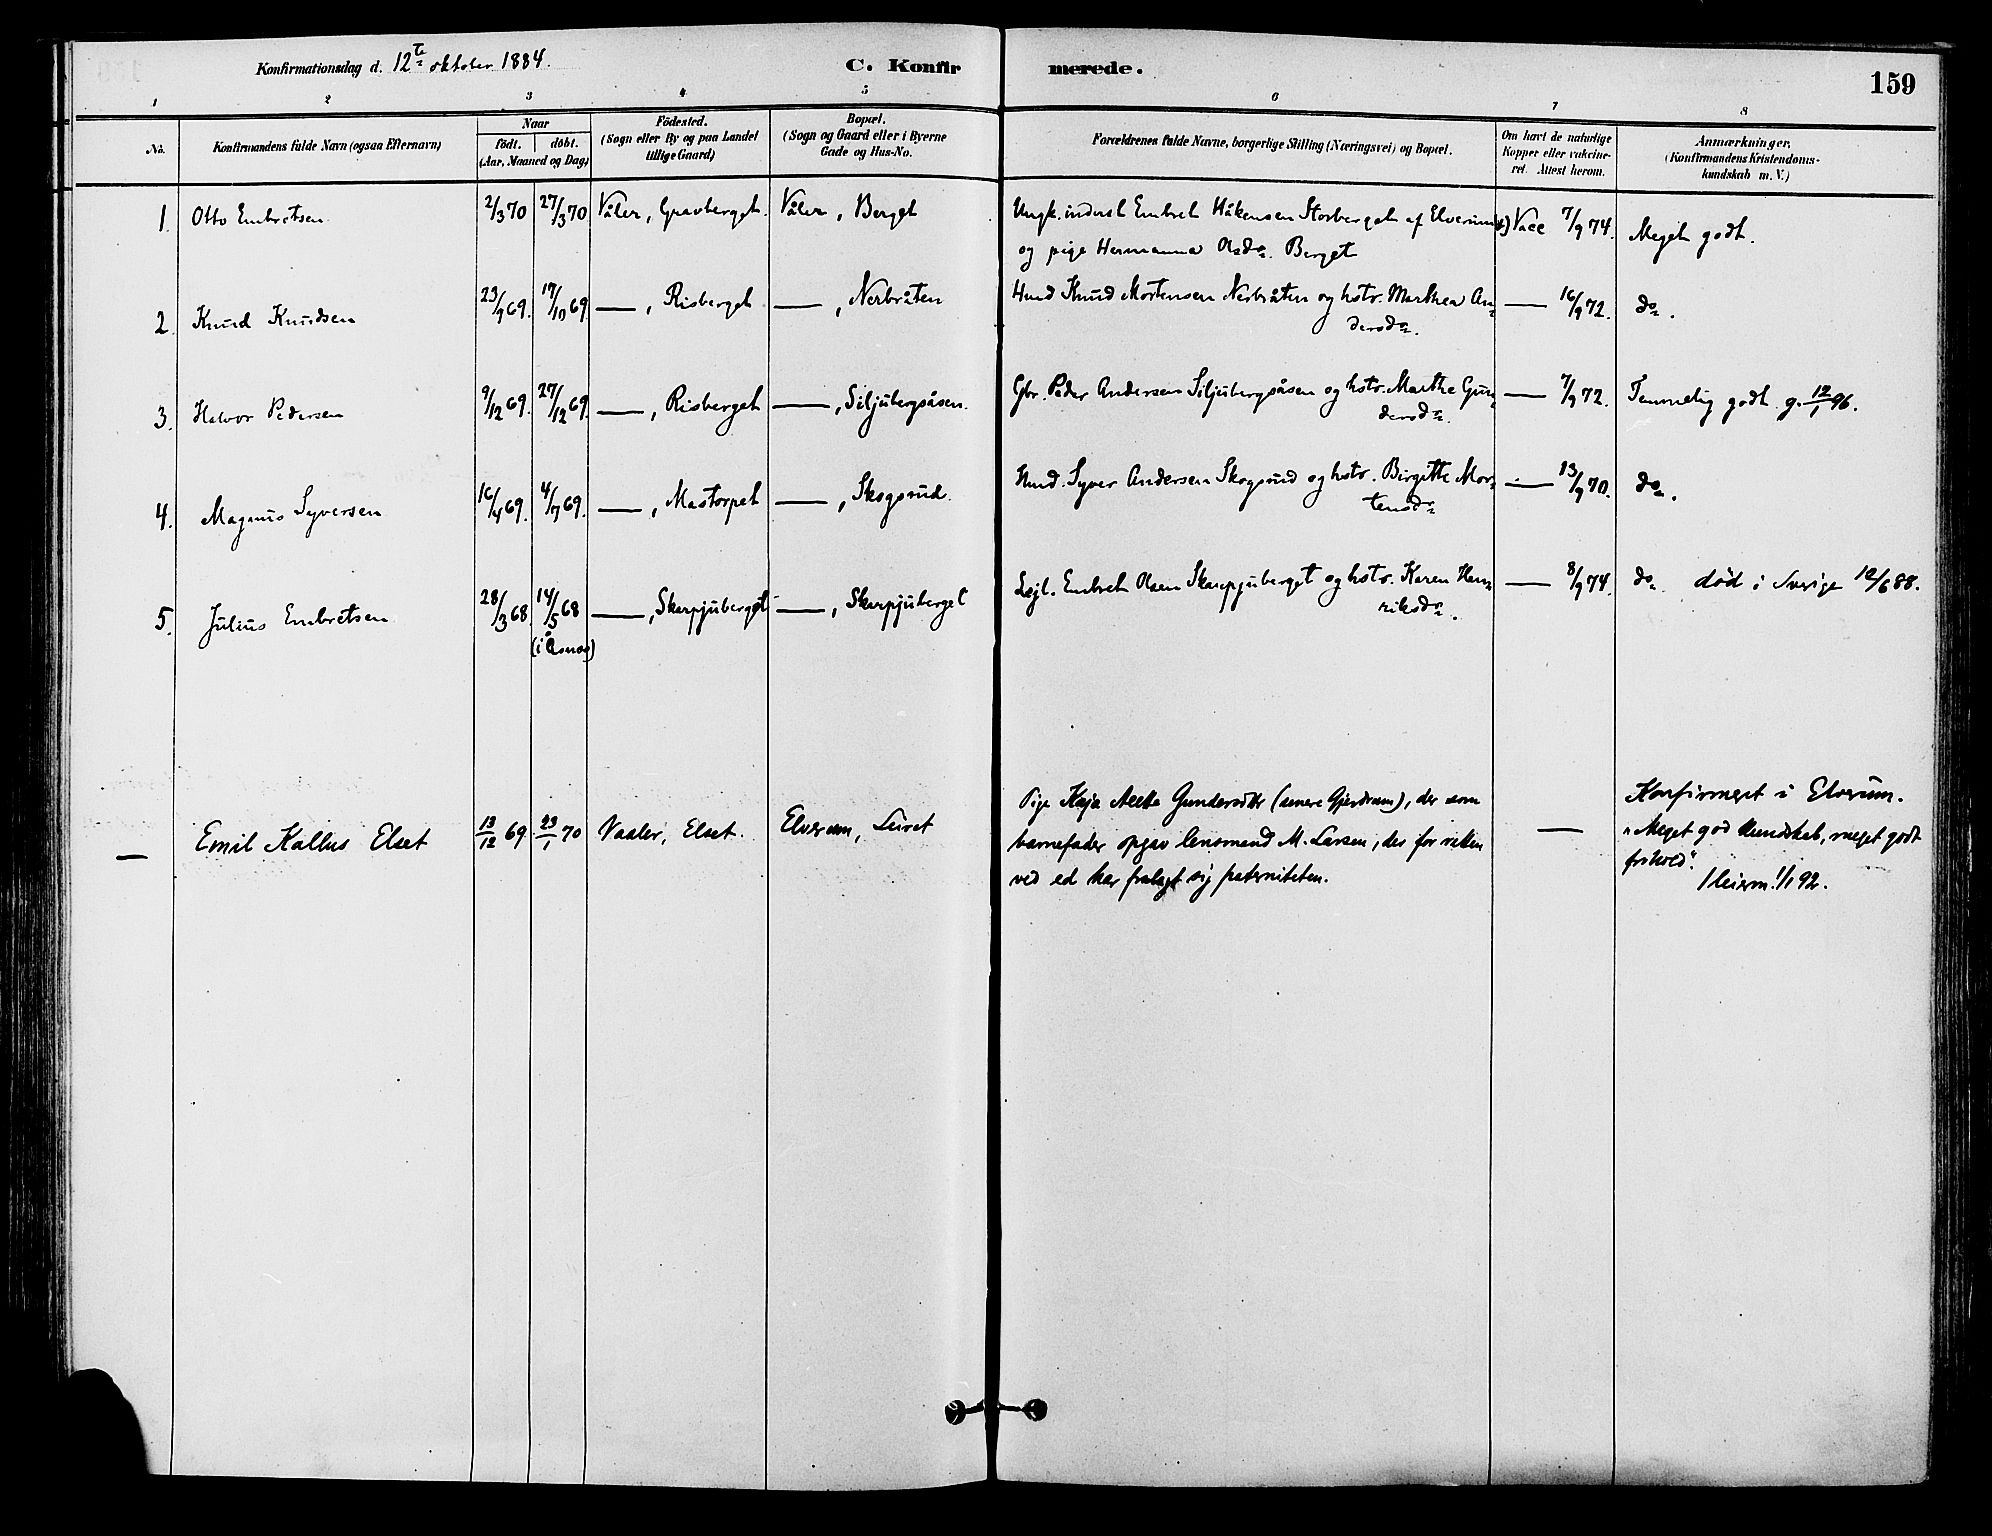 Konfirmationsdag d. 12te oktober 1884.
C. Konfirmerede.
159
1 2 3 4 5 6 7 8
No.
Konfirmandens fulde Navn (ogsaa Efternavn)
Naar
født. døbt.
(Aar, Maaned og Dag)
Fødested.
(Sogn eller By og paa Landet
tillige Gaard)
Bopæl.
(Sogn og Gaard eller i Byerne
Gade og Hus-No.
Forældrenes fulde Navne, borgerlige Stilling (Næringsvei) og Bopæl.
Om havt de naturlige
Kopper eller vakcine-
ret. Attest herom.
Anmærkninger.
(Konfirmandens Kristendoms-
kundskab m. V.)
1. Otto Embretsen 2/3 70 27/3 70 Våler, Gravberget. Våler, Berget Ungk. inderst Embret Håkensen Storberget af Elverum Vacc 7/9 74. Meget godt.
og pige Hermanna Olsdr. Berget
2. Knud Knudsen 23/9 69. 17/10 69 —, Risberget —, Nerbråten Hmd Knud Mortensen Nerbråten og hstr. Marthea An-
dersdr. — 16/9 72. do.
3. Halvor Pedersen 9/12 69. 27/12 69. —, Risberget —, Siljubergsåsen. Gbr. Peder Andersen Siljubergsåsen og hstr. Marthe Gun-
dersdr. — 7/9 72. Temmelig godt g. 12/1 96.
4. Magnus Syversen 16/4 69. 4/7 69. —, Mastorpet —, Skogsrud. Hmd. Syver Andersen Skogsrud og hstr. Birgitte Mor-
tensdr — 13/9 70. do.
5. Julius Embretsen 28/3 68. 14/5 68 —, Skarpjuberget —, Skarpjuberget Lejl. Embret Olsen Skarpjuberget og hstr. Karen Hen-
riksdr. — 8/9 74. do død i Sverige 12/6 88.
(i Åsnes)
— Emil Kallus Elset 13/12 69 23/1 70 Vaaler, Elset. Elverum, Leiret
Pige Kaja Gundersdtr (senere Gjerdrum), der som
barnefader opgav lensmand M. Larsen, der for retten
ved ed har fralagt sig paterniteten.
—
Konfirmeret i Elverum.
"Meget god kundskab, meget godt
forhold".
1/1 92.